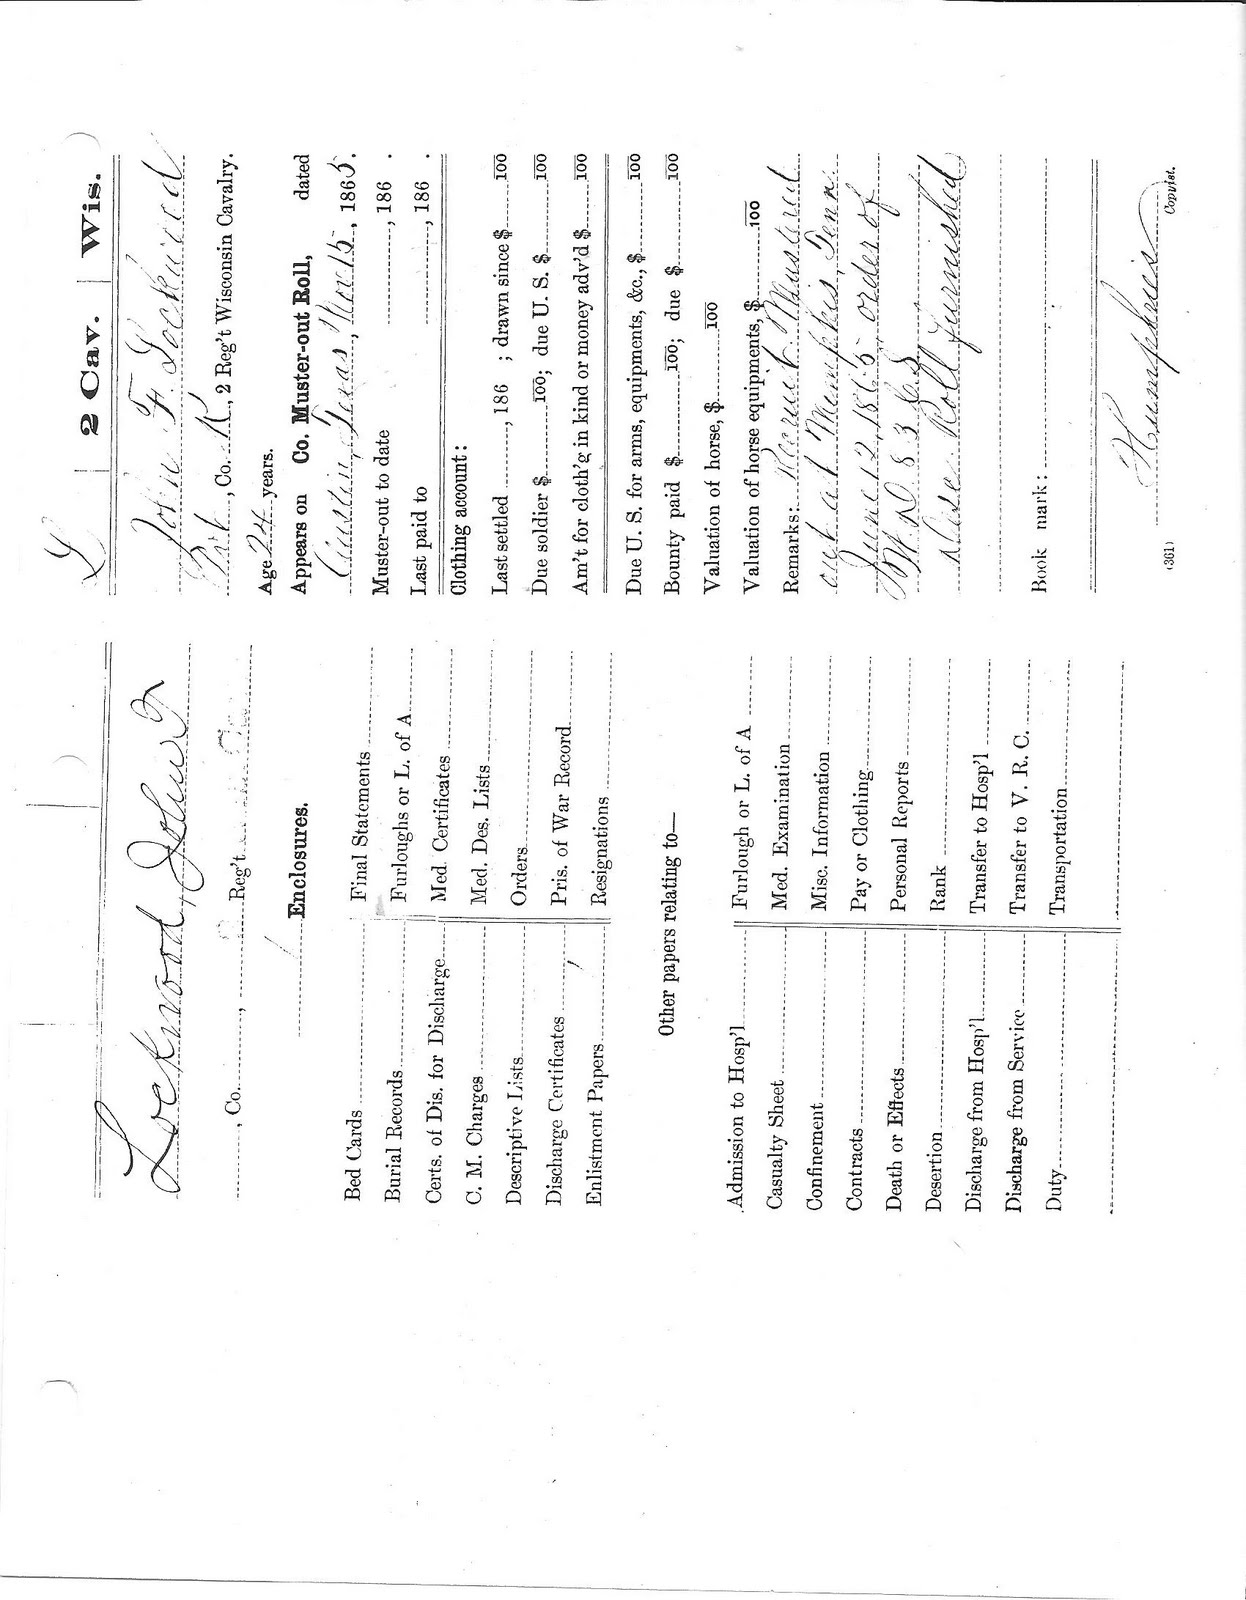 Lockwood, John F
, Co. , Reg't
1
Enclosures.
Bed Cards Final Statements
Burial Records Furloughs or L. of A
Certs. of Dis. for Discharge Med. Certificates
C. M. Charges Med. Des. Lists
Descriptive Lists Orders
Discharge Certificates Pris. of War Record
Enlistment Papers 1 Resignations
Other papers relating to—
Admission to Hosp'l Furlough or L. of A
Casualty Sheet Med. Examination
Confinement Misc. Information
Contracts Pay or Clothing
Death or Effects Personal Reports
Desertion Rank
Discharge from Hosp'l Transfer to Hosp'l
Discharge from Service Transfer to V. R. C.
Duty Transportation
L 2 Cav. Wis.
John F. Lockwood
Pvt., Co. K, 2 Reg't Wisconsin Cavalry.
Age 24 years.
Appears on Co. Muster-out Roll, dated
Austin, Texas, Nov 15, 1865.
Muster-out to date , 186 .
Last paid to , 186 .
Clothing account:
Last settled , 186 ; drawn since $ 100
Due soldier $ 100; due U. S. $ 100
Am't for cloth'g in kind or money adv'd $ 100
Due U. S. for arms, equipments, &c., $ 100
Bounty paid $ 100; due $ 100
Valuation of horse, $ 100
Valuation of horse equipments, $ 100
Remarks: Recruit Mustered
out at Memphis, Tenn
June 12, 1865 order of
W. D. 5 8 3 65
Disc. Roll furnished
Book mark:
Humphries
(361) Copyist.